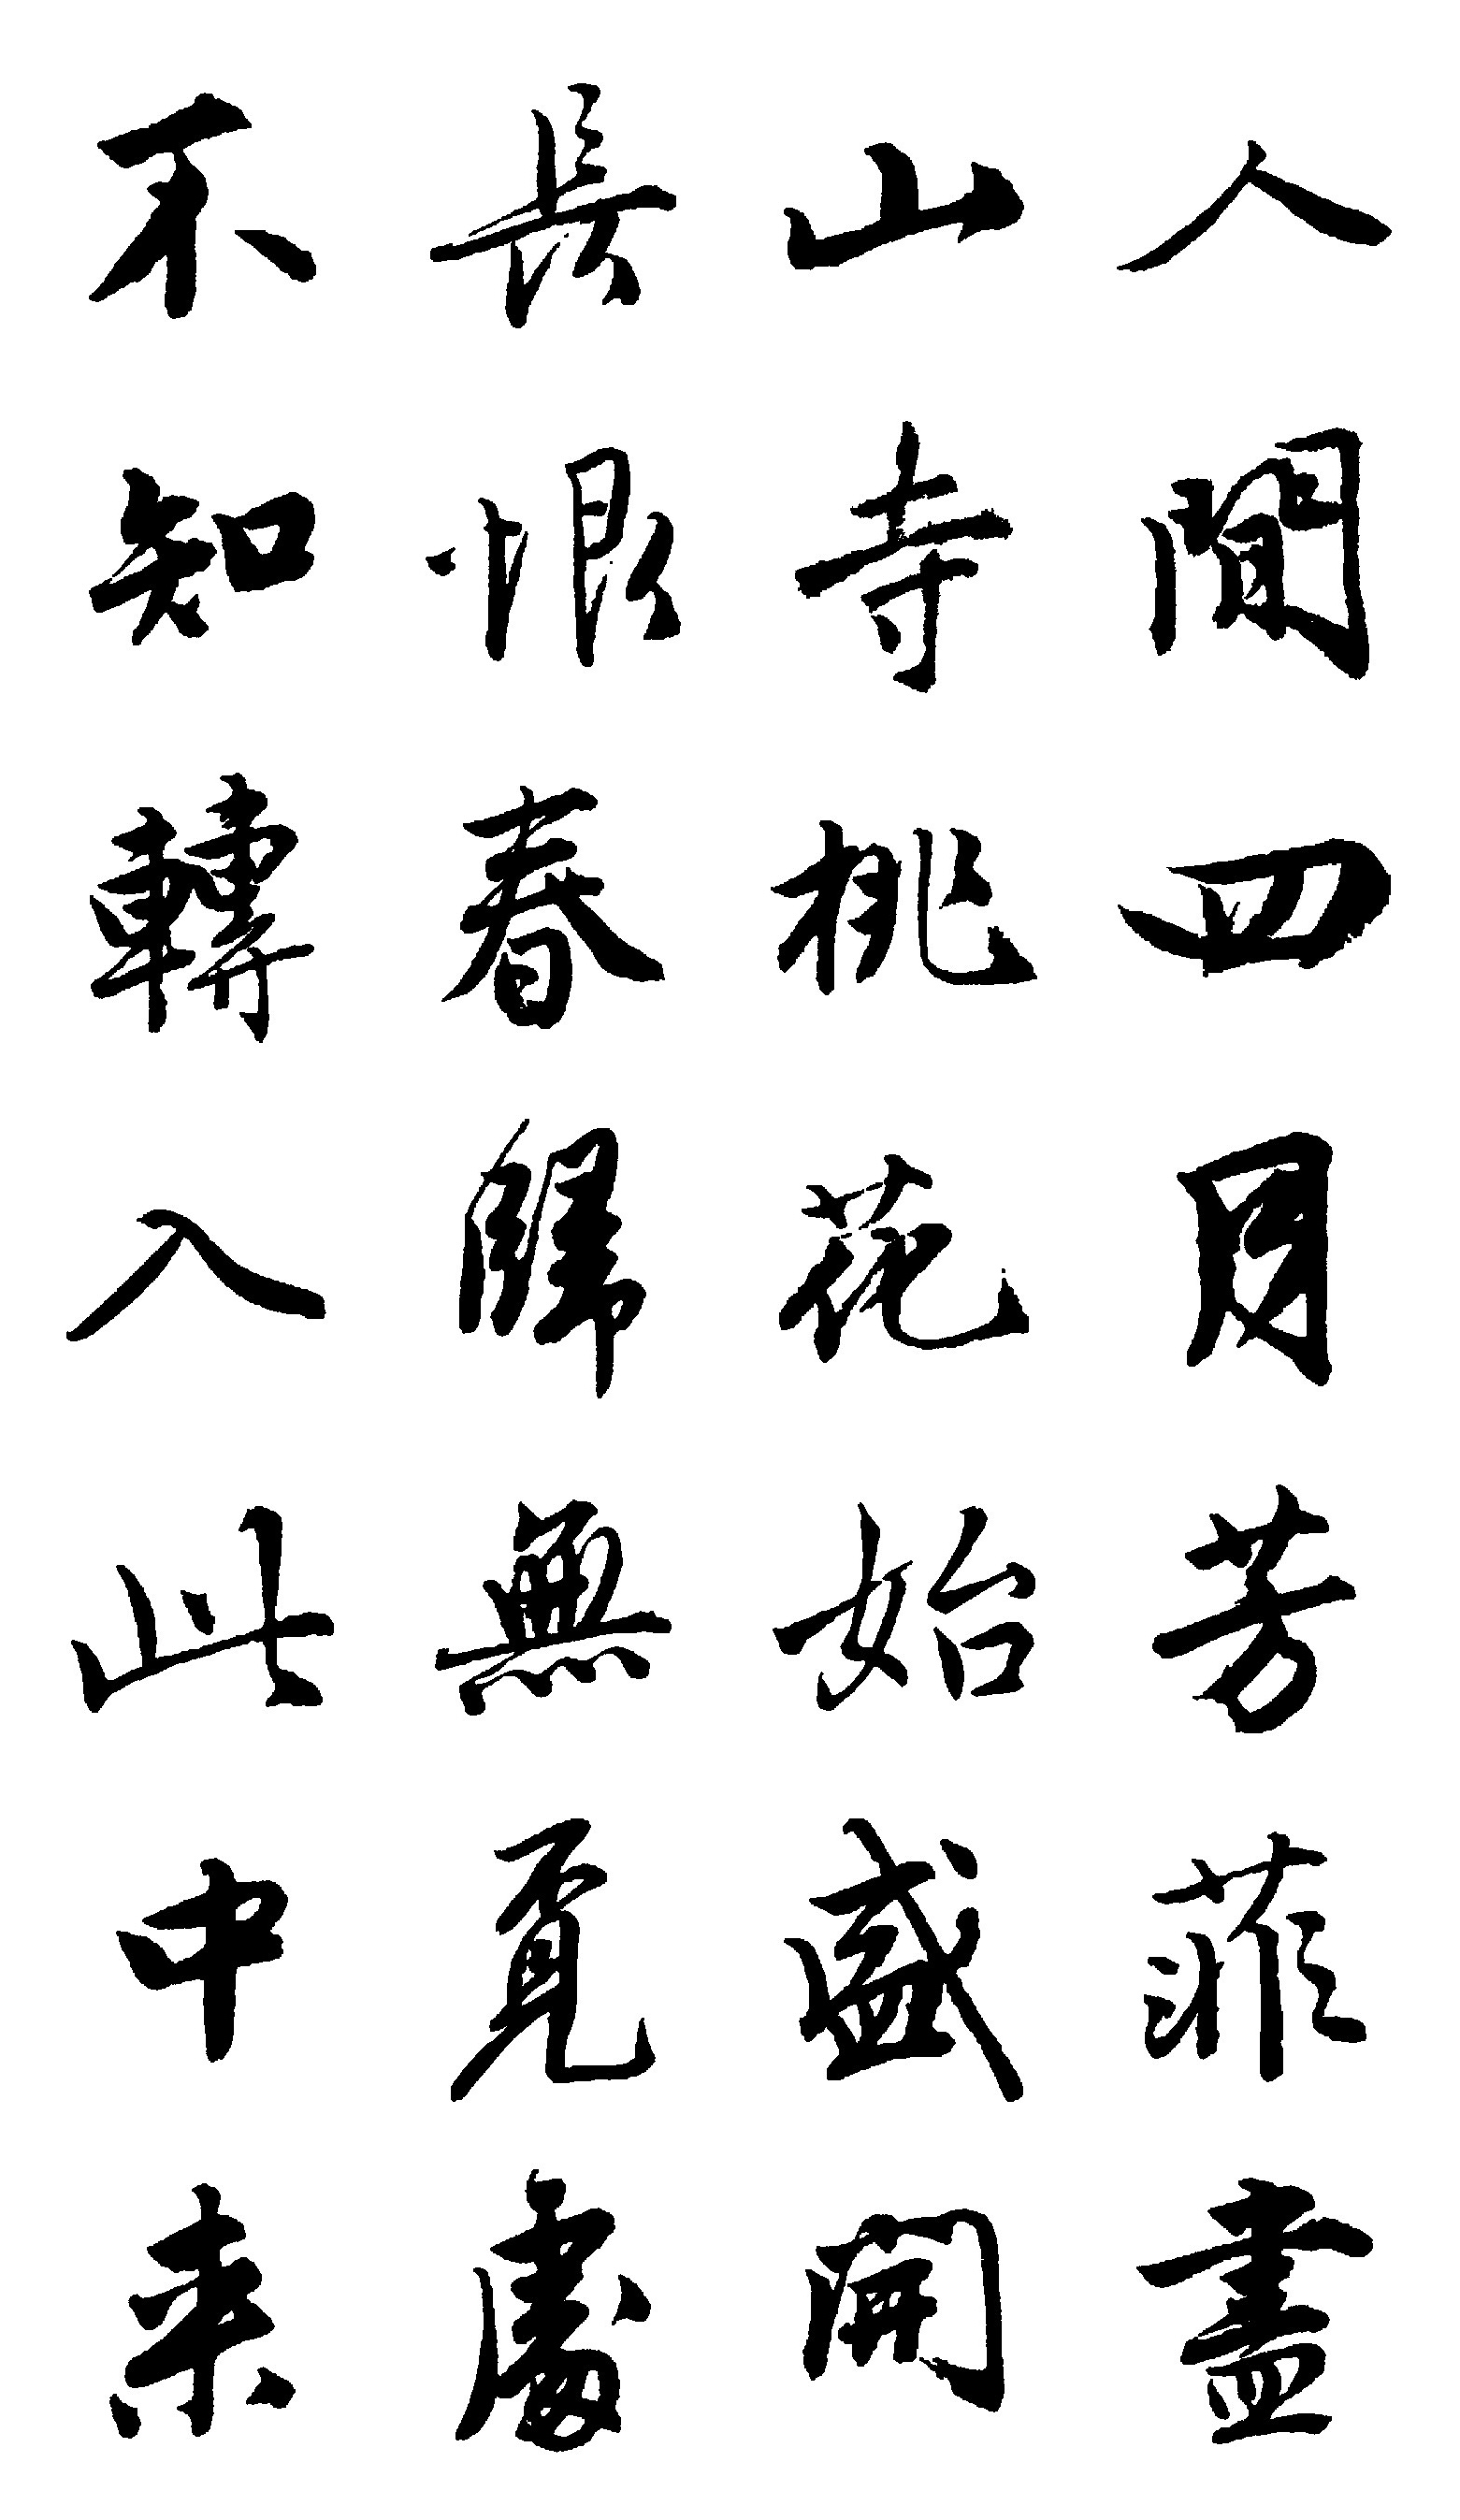 人間四月芳菲盡
山寺桃花始盛開
長恨春歸無覓處
不知轉入此中来